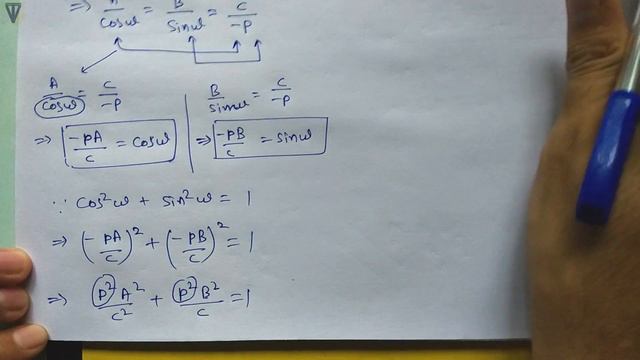 ⇒ A/cosω = B/sinω = C/-P
A/cosω = C/-P
B/sinω = C/-P
⇒ -PA/C = cosω
⇒ -PB/C = sinω
∵ cos²ω + sin²ω = 1
⇒ (-PA/C)² + (-PB/C)² = 1
⇒ P²A²/C² + P²B²/C = 1